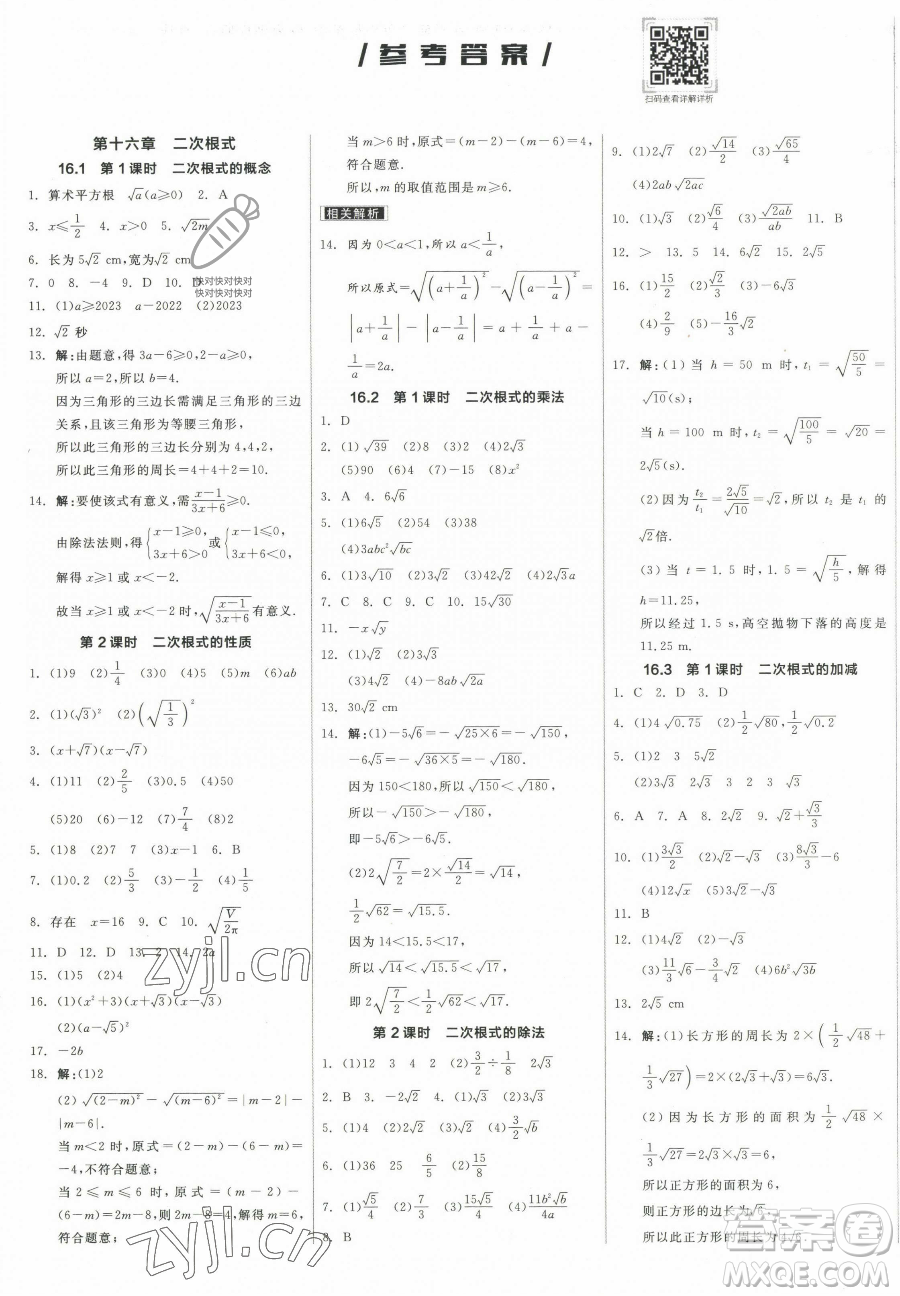 参考答案
扫码查看详解详析
第十六章 二次根式
16.1 第1课时 二次根式的概念
1. 算术平方根 √a(a≥0) 2. A
3. x≤1/2 4. x>0 5. √(2m)
6. 长为5√2 cm,宽为√2 cm
7. 0 8. -4 9. D 10. D
快对快对快对
快对快对快对
11. (1)a≥2023 a-2022 (2)2023
12. √2 秒
13. 解:由题意,得3a-6≥0,2-a≥0,
所以a=2,所以b=4.
因为三角形的三边长需满足三角形的三边
关系,且该三角形为等腰三角形,
所以此三角形的三边长分别为4,4,2,
所以此三角形的周长=4+4+2=10.
14. 解:要使该式有意义,需(x-1)/(3x+6)≥0.
由除法法则,得{x-1≥0, 3x+6>0 或{x-1≤0, 3x+6<0,
解得x≥1或x<-2.
故当x≥1或x<-2时,√((x-1)/(3x+6))有意义.
第2课时 二次根式的性质
1. (1)9 (2)1/4 (3)0 (4)5 (5)-1 (6)ab
2. (1)(√3)² (2)(√(1/3))²
3. (x+√7)(x-√7)
4. (1)11 (2)2/5 (3)0.5 (4)5
(5)20 (6)-12 (7)7/4 (8)2
5. (1)8 (2)7 7 (3)x-1 6. B
7. (1)0.2 (2)5/3 (3)6 (4)-5
8. 存在 x=16 9. C 10. √(V/2π)
11. D 12. D 13. 2 14. 2a
15. (1)5 (2)4
16. (1)(x²+3)(x+√3)(x-√3)
(2)(a-√5)²
17. -2b
18. 解:(1)2
(2)√((2-m)²)-√((m-6)²)=|m-2|-
|m-6|.
当m<2时,原式=(2-m)-(6-m)=
-4,不符合题意;
当2≤m≤6时,原式=(m-2)-
(6-m)=2m-8=4,解得m=6,
符合题意;
当m>6时,原式=(m-2)-(m-6)=4,
符合题意.
所以,m的取值范围是m≥6.
相关解析
14. 因为0<a<1,所以a<1/a,
所以原式=√((a+1/a)²)-√((a-1/a)²)=
|a+1/a|-|a-1/a|=a+1/a+a-
1/a=2a.
16.2 第1课时 二次根式的乘法
1. D
2. (1)√39 (2)8 (3)2 (4)2√3
(5)90 (6)2 (7)-15 (8)x²
3. A 4. 6√6
5. (1)6√5 (2)54 (3)38
(4)3abc²√(bc)
6. (1)3√10 (2)3√2 (3)42√2 (4)2√3a
7. C 8. C 9. C 10. 15√7
11. -x√y
12. (1)2√2 (2)√3 (3)-15 (4)-8ab√(2a)
13. 30√2 cm
14. 解:(1)-5√6=-√(25×6)=-√150,
-6√5=-√(36×5)=-√180.
因为150<180,
所以-√150>-√180,
即-5√6>-6√5.
(2)2√(7/2)=2×√14/2=√14,
1/2√62=√15.5.
因为14<15.5,
所以√14<√15.5,
即2√(7/2)<1/2√62.
第2课时 二次根式的除法
1. (1)12 3 4 2 (2)3/2÷1/8 2√3
2. B 3. -2√2 4. D
5. (1)4 (2)√2 (3)2√2 (4)3/2√b
6. (1)36 25 6/5 (2)√15/8
7. (1)√5/4 (2)√6/7 (3)15√5/4 (4)11b²√b/4a
8. B
9. (1)2√7 (2)√14/2 (3)√65/4
(4)2ab√(2ac)
10. (1)√3 (2)√6/4 (3)√(2ab)/ab 11. B
12. > 13. 5 14. 6√2 15. √2
16. (1)15/2 (2)√2/2 (3)-6√3
(4)2/9 (5)-1/6√2
17. 解:(1)当h=50 m时,t₁=√(50/5)=
√10(s);
当h=100 m时,t₂=√(100/5)=√20=
2√5(s).
(2)因为t₂/t₁=2√5/√10=√2,所以t₂是t₁的
√2倍.
(3)当t=1.5时,1.5=√(h/5),解得
h=11.25,
所以经过1.5 s,高空抛物下落的高度是
11.25 m.
16.3 第1课时 二次根式的加减
1. C 2. D 3. D
4. (1)4√0.75 (2)1/2√80,1/2√0.2
5. (1)2 3 5√2
(2)3√3 2√3 3 2 3 √3
6. A 7. A 8. 2√2 9. √2+√3/3
10. (1)3√3/4 (2)√2-√3 (3)8√3/3-6
(4)12√x (5)6√3
11. B
12. (1)4√2-√3
(2)11/4√3-3/4√2 (3)6√(3b)
13. 2√5 cm
14. 解:(1)长方形的周长为2×(1/2√48+
1/3√27)=2(2√3+√3)=6√3.
(2)因为长方形的面积为1/2√48×
1/3√27=2√3×√3=6,
所以正方形的面积为6,
则正方形的边长为√6,
所以此正方形的周长为4√6.
zyjl.cn
zyjl.cn
答案卷
MXQE.COM